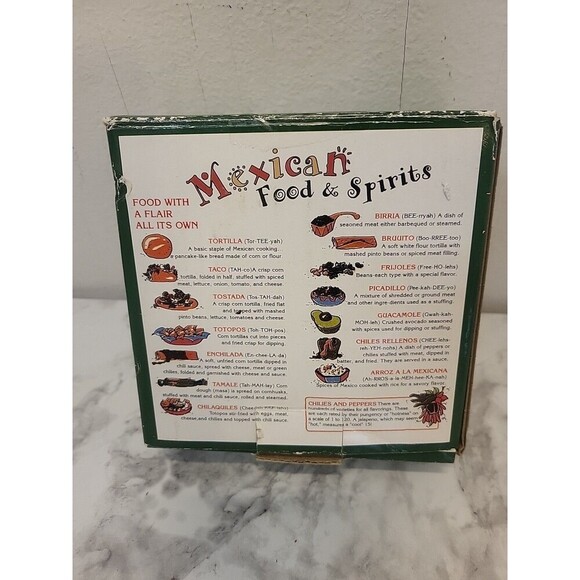 Mexican
Food & Spirits
FOOD WITH
A FLAIR
ALL ITS OWN
TORTILLA (Tor-TEE-yah)
A basic staple of Mexican cooking
a pancake-like bread made of corn or flour
TACO (TAH-co) A crisp corn
tortilla, folded in half, stuffed with spiced
meat, lettuce, onion, tomato, and cheese.
TOSTADA (Tos-TAH-dah)
A crisp corn tortilla, fried flat
and topped with mashed
pinto beans, lettuce, tomatoes and cheese.
TOTOPOS (Toh-TOH-pos)
Corn tortillas cut into pieces
and fried crisp for dipping.
ENCHILADA (En-chee-LA-da)
A soft, unfried corn tortilla dipped in chili
sauce, spread with cheese, meat or green
chilies, folded and garnished with cheese and sauce.
TAMALE (Tah-MAH-lay) Corn
dough (masa) is spread on cornhusks,
stuffed with meat and chili sauce, rolled and steamed.
CHILAQUILES
Totopos stir fried with eggs, meat,
cheese, and chilies and topped with chili sauce.
BIRRIA (BEE-rryah) A dish of
seasoned meat either barbequed or steamed.
BRUUITO (Boo-RREE-too)
A soft white flour tortilla with
mashed pinto beans or spiced meat filling.
FRIJOLES (Free-HO-lehs)
Beans-each type with a special flavor.
PICADILLO (Pee-kah-DEE-yo)
A mixture of shredded or ground meat
and other ingredients used as a stuffing.
GUACAMOLE (Gwah-kah-
MOH-leh) Crushed avocado seasoned
with spices used for dipping or stuffing.
CHILES RELLENOS (CHEE-lehs-
reh-YEH-nohs) A dish of peppers
or chilies stuffed with meat, dipped in
batter, and fried. They are served in a sauce.
ARROZ A LA MEXICANA
(Ah-RROS-a-la-MEH-hee-KA-nah)
Spices of Mexico cooked with rice for a savory flavor.
CHILIES AND PEPPERS There are
hundreds of varieties for all flavorings. These
are each rated by their pungency or "hotness" on
a scale of 1 to 120. A jalapeno, which may seem
"hot," measures a "cool" 15!